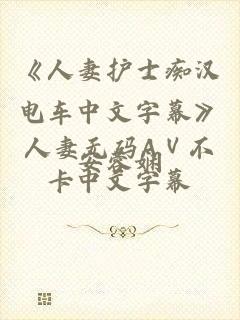 《人妻护士痴汉
电车中文字幕》
人妻无码AV不
安容娴
卡中文字幕